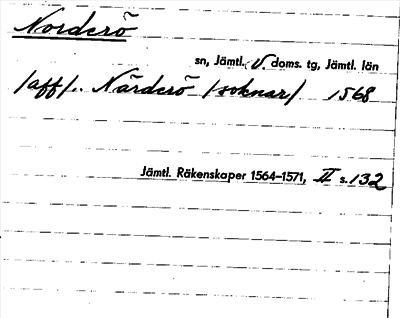 Norderö
sn, Jämtl. V. doms. tg, Jämtl. län
/aff/.. Närderö /soknar/ 1568
Jämtl. Räkenskaper 1564–1571, II s. 132